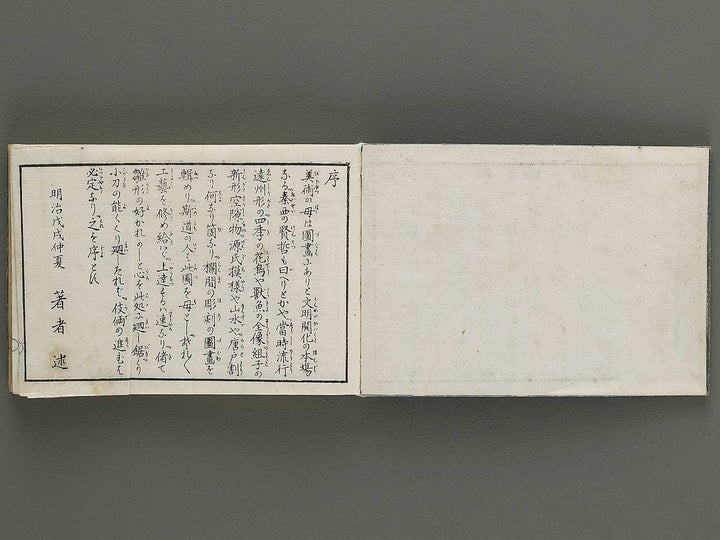 序
美術の母は圖畫にありと文明開化の本場
なる泰西の賢哲も曰へりとかや當時流行
遠州形の四季の花鳥や獸魚の全像組子の
新形空隙物源氏摸樣や山水や唐戸割
なり何なり箇なり欄間の彫刻の圖畫を
輯めり斯道の人々此圖を母として
工藝を修め給はく上達するハ速なり偖て
雛形の好かれかしと心を此処に廻し鋸くり
小刀の能くくり廻したれバ伎倆の進むは
必定なり之を序とバ
明治戊戌仲夏 著者述